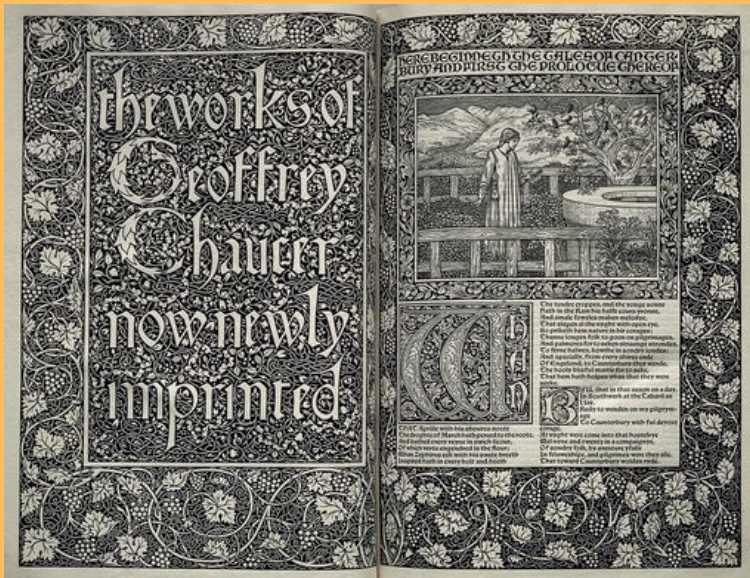 the works of
Geoffrey
Chaucer
now newly
imprinted
HERE BEGINNETH THE TALES OF CANTER
BURY AND FIRST THE PROLOGUE THEREOF
Whan
THAT Aprille with his shoures soote
The droghte of March hath perced to the roote,
And bathed every veyne in swich licour,
Of which vertu engendred is the flour;
Whan Zephirus eek with his swete breeth
Inspired hath in every holt and heeth
The tendre croppes, and the yonge sonne
Hath in the Ram his halfe cours yronne,
And smale foweles maken melodye,
That slepen al the nyght with open eye,
So priketh hem nature in hir corages;
Thanne longen folk to goon on pilgrimages,
And palmeres for to seken straunge strondes,
To ferne halwes, kowthe in sondry londes;
And specially, from every shires ende
Of Engelond, to Caunterbury they wende,
The hooly blisful martir for to seke,
That hem hath holpen whan that they were
BIFIL that in that seson on a day,
In Southwerk at the Tabard as
I lay,
Redy to wenden on my pilgrym-
age
To Caunterbury with ful devout
corage,
At nyght were come into that hostelrye
Wel nyne and twenty in a compaignye,
Of sondry folk, by aventure yfalle
In felaweshipe, and pilgrimes were they alle,
That toward Caunterbury wolden ryde.